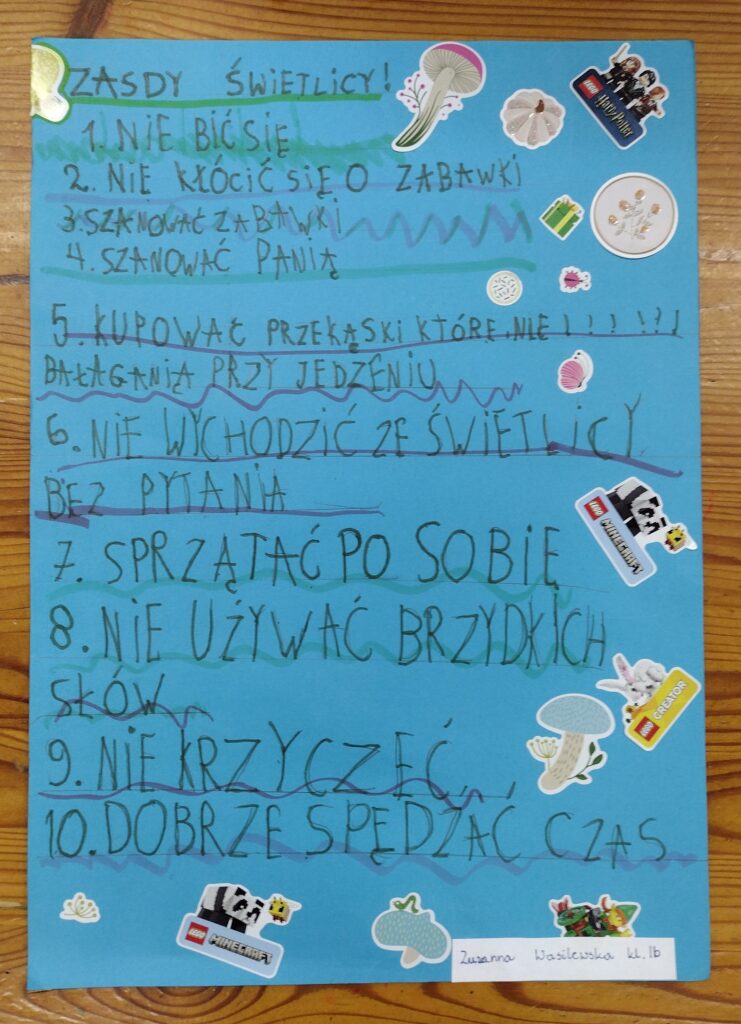 ZASDY ŚWIETLICY!
1. NIE BIĆ SIĘ
2. NIE KŁÓCIĆ SIĘ O ZABAWKI
3. SZANOWAĆ ZABAWKI
4. SZANOWAĆ PANIĄ
5. KUPOWAĆ PRZEKĄSKI KTÓRE NIE ! ! ! !!!
BAŁAGANIĄ PRZY JEDZENIU
6. NIE WYCHODZIĆ ZE ŚWIETLICY
BEZ PYTANIA
7. SPRZĄTAĆ PO SOBIE
8. NIE UŻYWAĆ BRZYDKICH
SŁÓW
9. NIE KRZYCZEĆ
10. DOBRZE SPĘDZAĆ CZAS
Zuzanna Wasilewska kl. Ib
LEGO Harry Potter
LEGO MINECRAFT
LEGO CREATOR
LEGO MINECRAFT